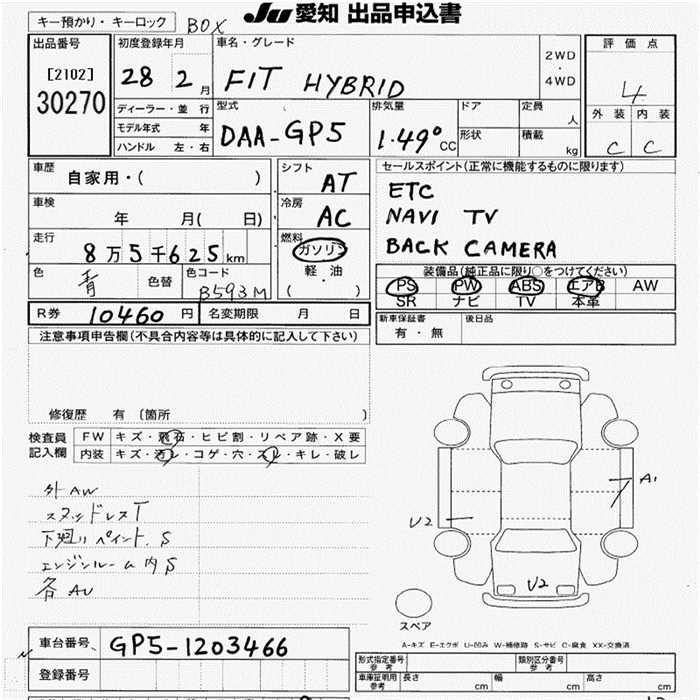 JU 愛知 出品申込書
キー預かり・キーロック BOX
出品番号 初度登録年月 車名・グレード 2WD・4WD 評価点
[2102] 28 2月 FIT HYBRID 4
30270 ディーラー・並行 型式 排気量 ドア 定員 人 外装 内装
モデル年式 年 DAA-GP5 1.49⁰cc 形状 積載 kg C C
ハンドル 左・右
車歴 自家用・( ) シフト AT セールスポイント(正常に機能するものに限ります)
車検 年 月( 日) 冷房 AC ETC
NAVI TV
走行 8万5千625km 燃料 ガソリン BACK CAMERA
軽・油
( )
色 青 色替 色コード B593M 装備品(純正品に限り○をつけてください)
PS PW ABS エアB AW
SR ナビ TV 本革
R券 10460円 名変期限 月 日 新車保証書 有・無 後日品
注意事項申告欄(不具合内容等は具体的に記入して下さい)
修復歴 有 (箇所 )
検査員記入欄 FW キズ・飛石・ヒビ割・リペア跡・X要
内装 キズ・汚レ・コゲ・穴・スレ・キレ・破レ
外AW
スタッドレスT
下廻りペイント.S
エンジンルーム内S
各AU
A1
U2
U2
スペア
A-キズ E-エクボ U-凹み W-補修跡 S-サビ C-腐食 XX-交換済
車台番号 GP5-1203466
登録番号
形式指定番号 参考 類別区分番号 参考
車庫証明用 参考 長さ cm 幅 cm 高さ cm